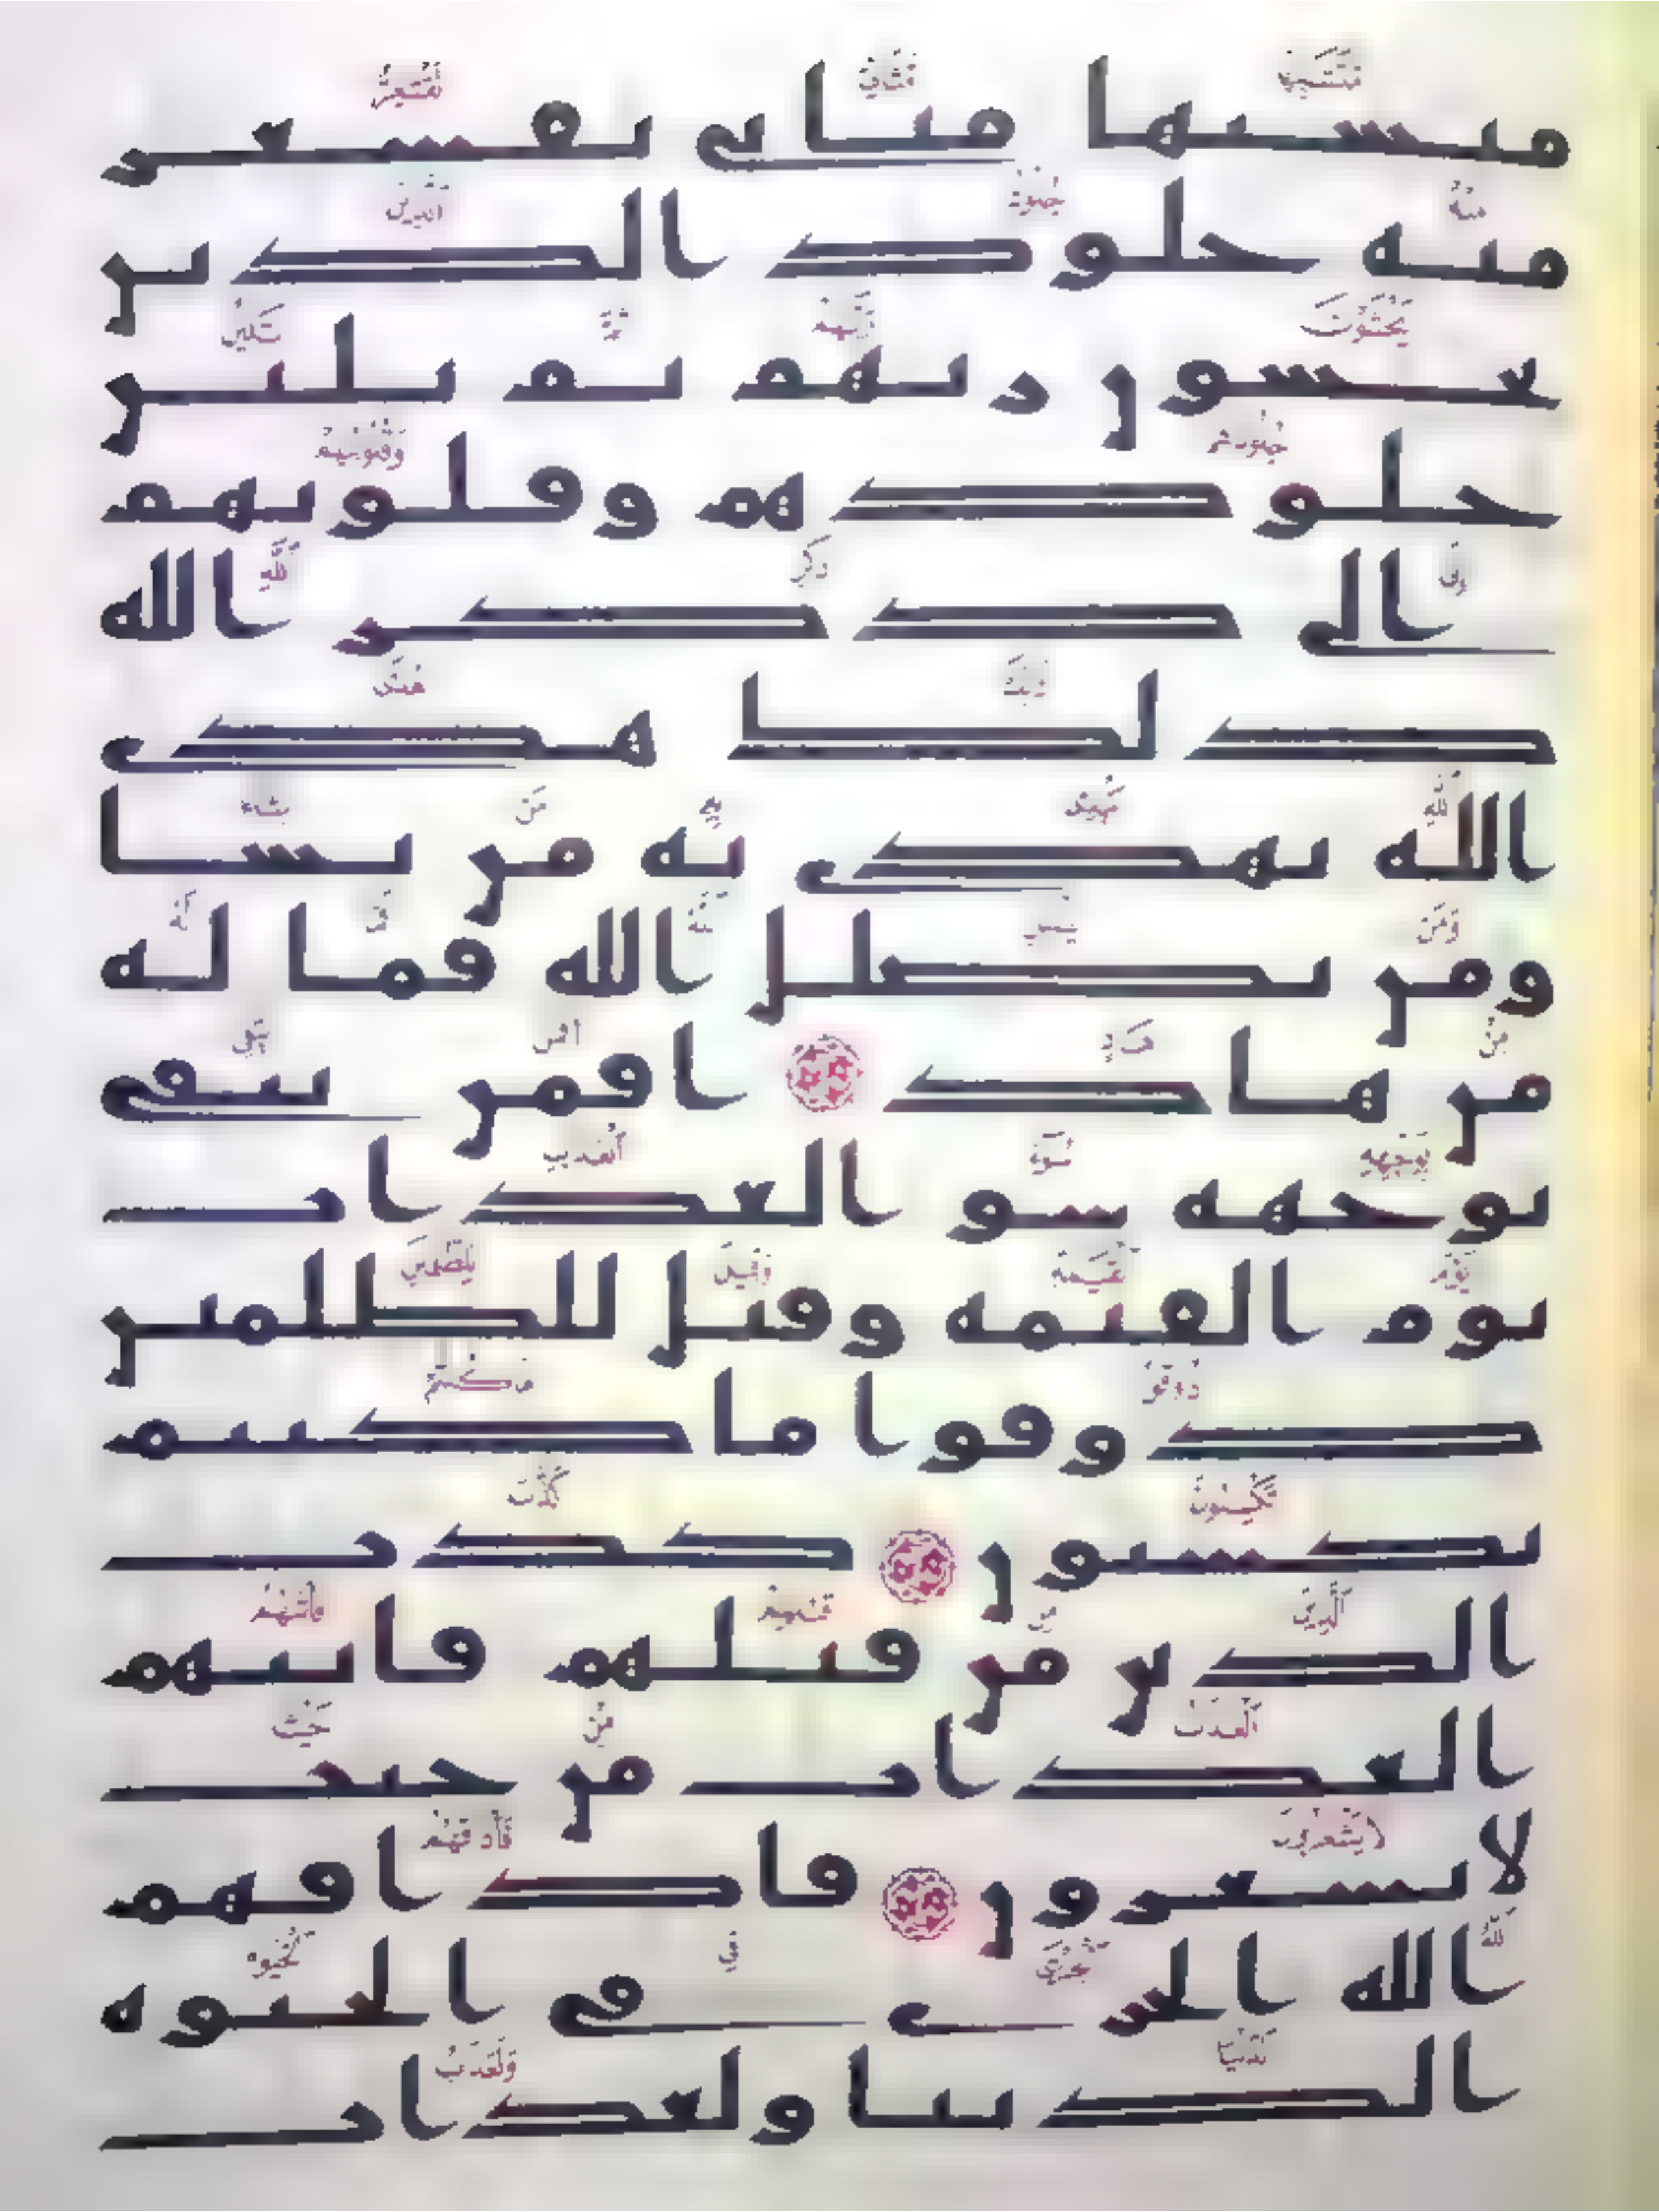 متشبها مثاني تقشعر
منه جلود الذين
يخشون ربهم ثم تلين
جلودهم وقلوبهم
الى ذكر الله
ذلك هدى
الله يهدي به من يشا
ومن يضلل الله فما له
من هاد افمن يتقي
بوجهه سو العذاب
يوم القيمة وقيل للظلمين
ذوقوا ما كنتم
تكسبون كذب
الذين من قبلهم فاتيهم
العذاب من حيث
لا يشعرون فاذاقهم
الله الخزي في الحيوة
الدنيا ولعذاب